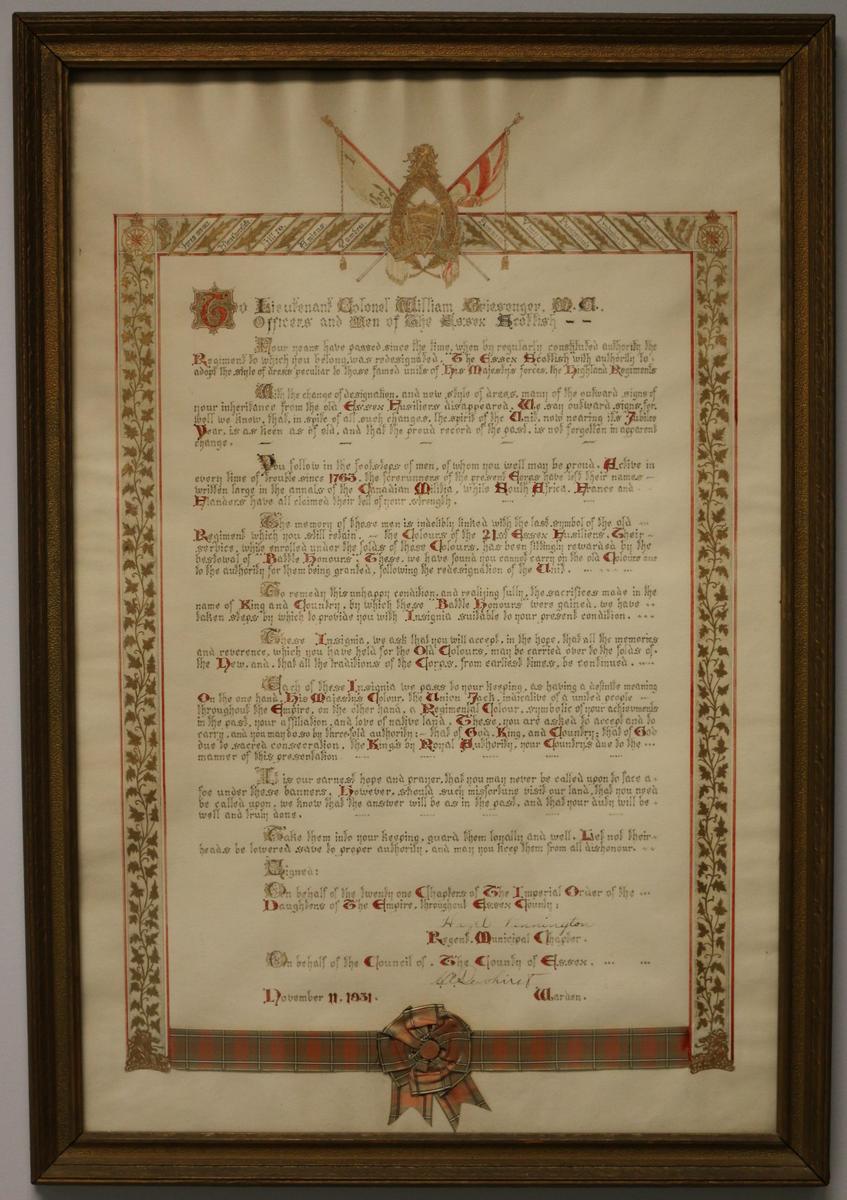 To Lieutenant Colonel William Griesenger, M.C.,
Officers and Men of The Essex Scottish
Four years have passed since the time, when by regularly constituted authority the
Regiment to which you belong was redesignated, "The Essex Scottish with authority to
adopt the style of dress peculiar to those famed units of His Majesty's forces, the Highland Regiments
With the change of designation, and new style of dress, many of the outward signs of
your inheritance from the old Essex Fusiliers disappeared. We say outward signs, for,
well we know, that, in spite of all such changes, the spirit of the Unit, now nearing it's Jubilee
Year, is as keen as of old, and that the proud record of the past, is not forgotten in apparent
change.
You follow in the footsteps of men, of whom you well may be proud. Active in
every time of trouble since 1763, the forerunners of the present Corps have left their names
written large in the annals of the Canadian Militia, while South Africa, France and
Flanders have all claimed their toll of your strength.
The memory of these men is indelibly linked with the last symbol of the old
Regiment which you still retain, - the Colours of the 21st Essex Fusiliers. Their
service, while enrolled under the folds of these Colours, has been fittingly rewarded by the
bestowal of "Battle Honours"; These, we have found you cannot carry on the old Colours due
to the authority for them being granted, following the redesignation of the Unit.
To remedy this unhappy condition, and realizing fully, the sacrifices made in the
name of King and Country, by which these "Battle Honours" were gained, we have
taken steps by which to provide you with Insignia suitable to your present condition.
These Insignia, we ask that you will accept, in the hope, that all the memories
and reverence, which you have held for the Old Colours, may be carried over to the folds of
the New, and, that all the traditions of the Corps, from earliest times, be continued.
Each of these Insignia we pass to your keeping, as having a definite meaning
On the one hand, His Majesty's Colour, the Union Jack, indicative of a united people
throughout the Empire, on the other hand, a Regimental Colour, symbolic of your achievments
in the past, your affiliation, and love of native land. These, you are asked to accept and to
carry, and you may do so by three-fold authority:- that of God, King, and Country; that of God
due to sacred consecration, the King's by Royal Authority, your Country's due to the
manner of this presentation
It is our earnest hope and prayer, that you may never be called upon to face a
foe under these banners. However, should such misfortune visit our land, that you need
be called upon, we know that the answer will be as in the past, and that your duty will be
well and truly done.
Take them into your keeping, guard them loyally and well. Let not their
heads be lowered save to proper authority, and may you keep them from all dishonour.
Signed:
On behalf of the twenty one Chapters of The Imperial Order of the
Daughters of The Empire, throughout Essex County:
Pennington
Regent, Municipal Chapter.
On behalf of the Council of, The County of Essex.
November 11, 1931.
Warden.